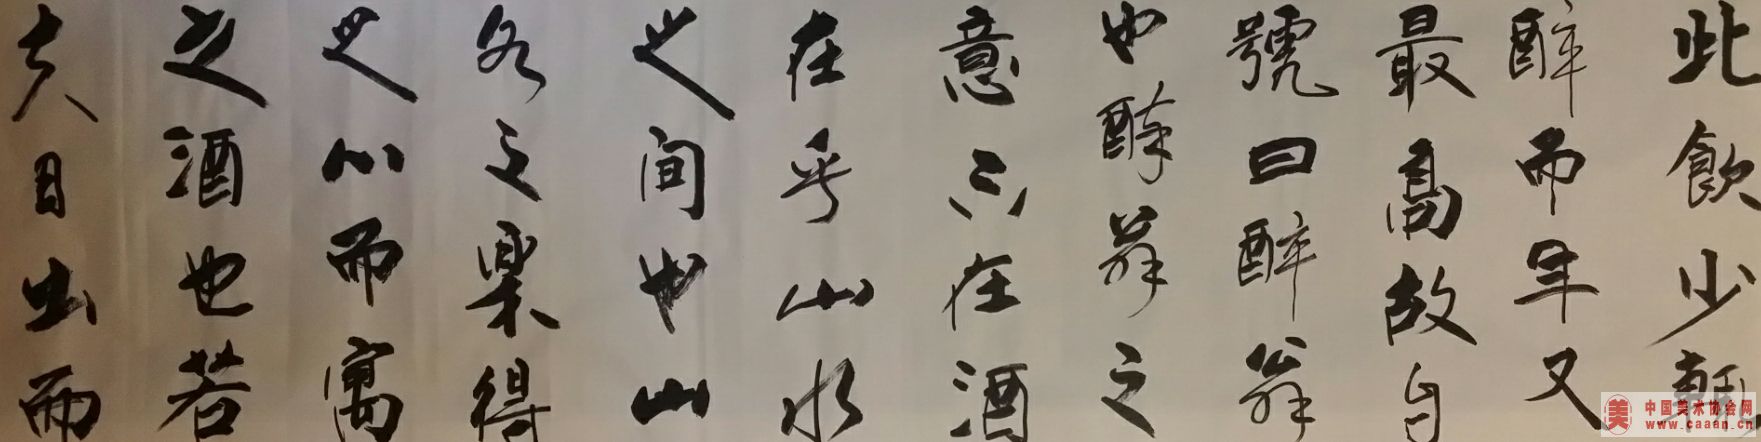 此飲少輒
醉而年又
最高故自
號曰醉翁
也醉翁之
意不在酒
在乎山水
之间也山
之樂得
之心而寓
之酒也若
夫日出而
美
中国美术协会网
www.caaan.cn